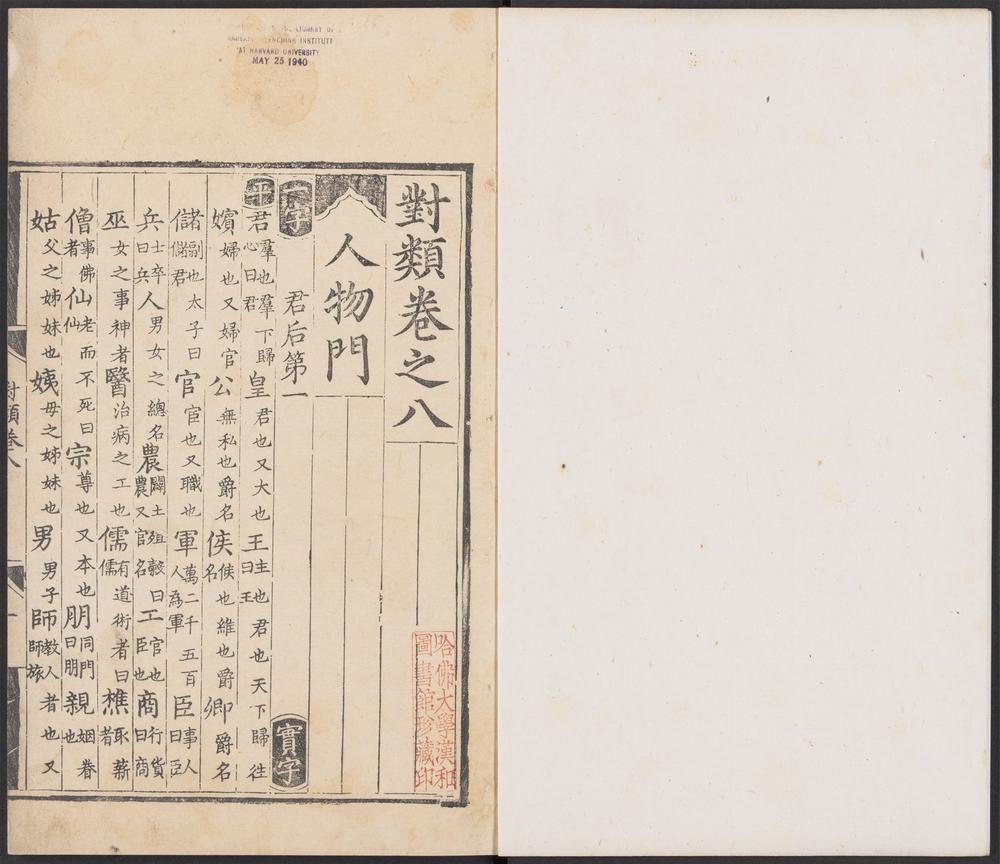 LIBRARY OF
INSTITUTE
AT HARVARD UNIVERSITY
MAY 25 1940
對類卷之八
哈佛大學漢和
圖書館珍藏印
人物門
一字 君后第一 實字
平 君羣也羣下歸心曰君 皇君也又大也 王主也君也天下歸往曰王
嬪婦也又婦官 公無私也爵名 侯侯也維也爵名 卿爵名
儲副也太子曰儲君 官官也又職也 軍萬二千五百人為軍 臣事人曰臣
兵士卒曰兵 人男女之總名 農闢土殖穀曰農又官名 工官也臣也 商行貨曰商
巫女之事神者 醫治病之工也 儒有道術者曰儒 樵取薪者
僧事佛者 仙老而不死曰仙 宗尊也又本也 朋同門曰朋 親姻眷也
姑父之姊妹也 姨母之姊妹也 男男子 師教人者也又師旅
對類卷八